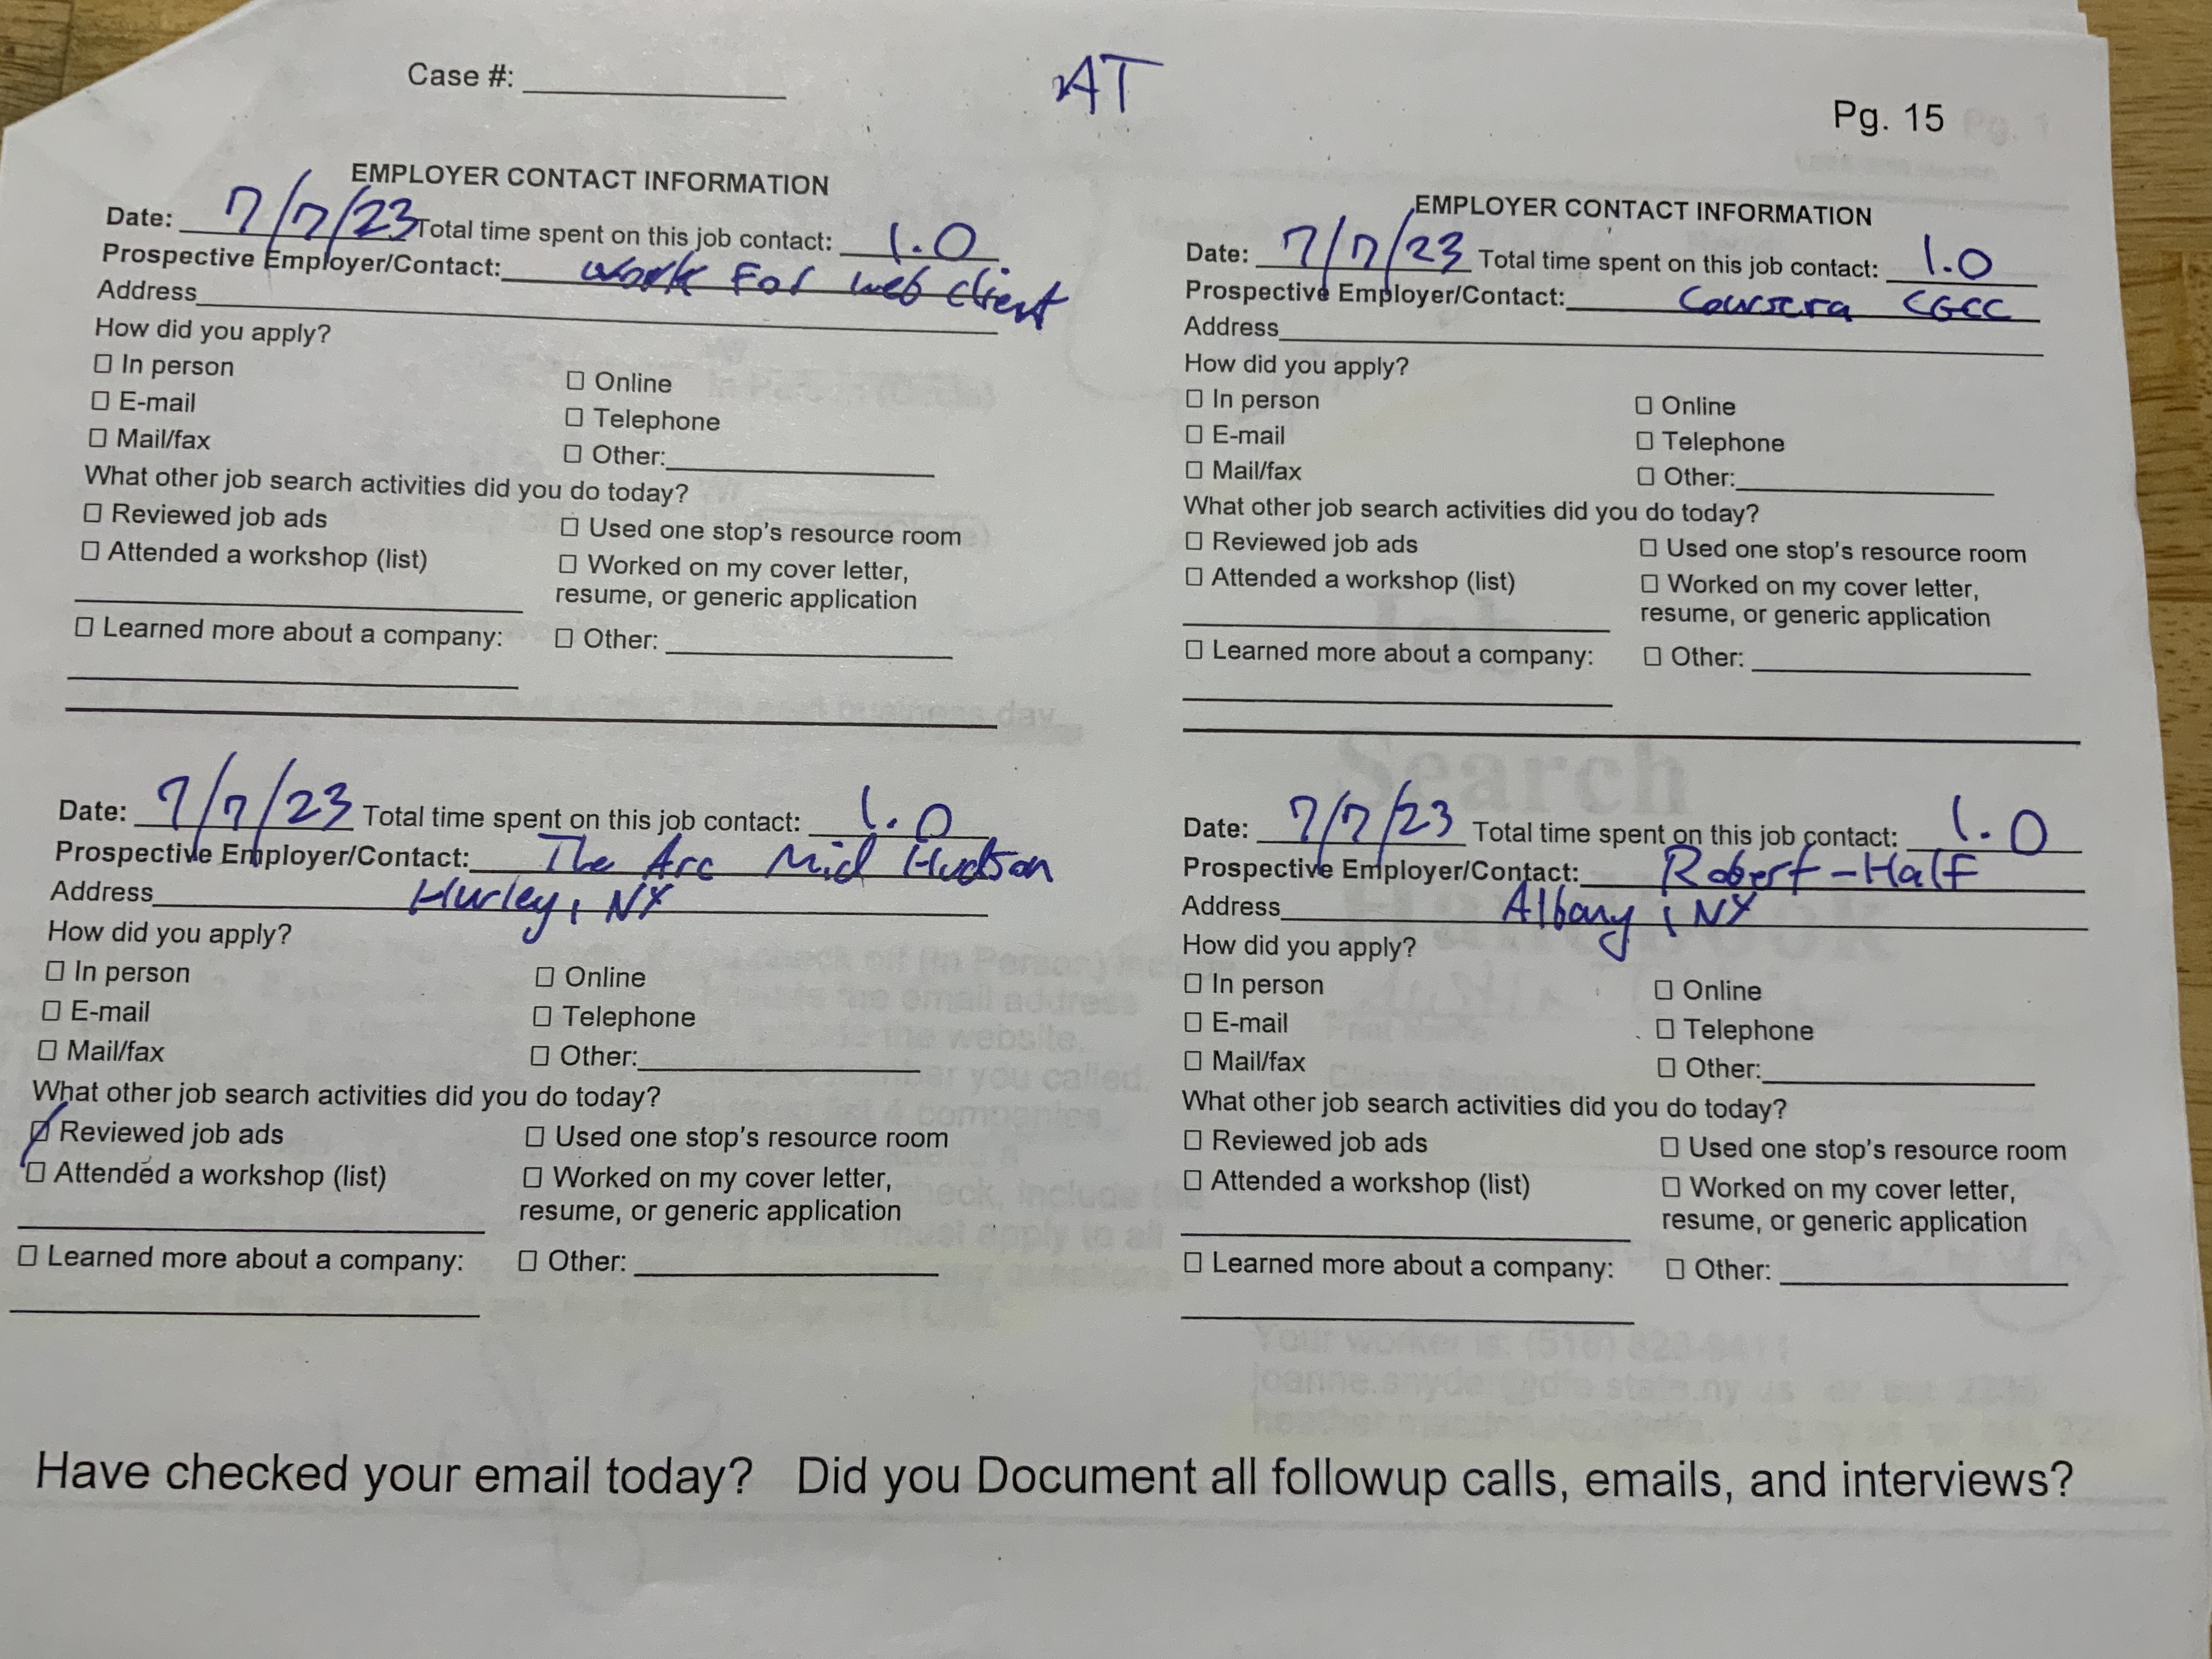 Case #:
AT
Pg. 15
EMPLOYER CONTACT INFORMATION
Date: 7/7/23 Total time spent on this job contact: 1.0
Prospective Employer/Contact: work For web client
Address
How did you apply?
☐ In person
☐ Online
☐ E-mail
☐ Telephone
☐ Mail/fax
☐ Other:
What other job search activities did you do today?
☐ Reviewed job ads
☐ Used one stop's resource room
☐ Attended a workshop (list)
☐ Worked on my cover letter,
resume, or generic application
☐ Learned more about a company:
☐ Other:
EMPLOYER CONTACT INFORMATION
Date: 7/7/23 Total time spent on this job contact: 1.0
Prospective Employer/Contact: Coursera CGCC
Address
How did you apply?
☐ In person
☐ Online
☐ E-mail
☐ Telephone
☐ Mail/fax
☐ Other:
What other job search activities did you do today?
☐ Reviewed job ads
☐ Used one stop's resource room
☐ Attended a workshop (list)
☐ Worked on my cover letter,
resume, or generic application
☐ Learned more about a company:
☐ Other:
Date: 7/7/23 Total time spent on this job contact: 1.0
Prospective Employer/Contact: The Arc Mid Hudson
Address Hurley, NY
How did you apply?
☐ In person
☐ Online
☐ E-mail
☐ Telephone
☐ Mail/fax
☐ Other:
What other job search activities did you do today?
☑ Reviewed job ads
☐ Used one stop's resource room
☐ Attended a workshop (list)
☐ Worked on my cover letter,
resume, or generic application
☐ Learned more about a company:
☐ Other:
Date: 7/7/23 Total time spent on this job contact: 1.0
Prospective Employer/Contact: Robert-Half
Address Albany, NY
How did you apply?
☐ In person
☐ Online
☐ E-mail
☐ Telephone
☐ Mail/fax
☐ Other:
What other job search activities did you do today?
☐ Reviewed job ads
☐ Used one stop's resource room
☐ Attended a workshop (list)
☐ Worked on my cover letter,
resume, or generic application
☐ Learned more about a company:
☐ Other:
Have checked your email today? Did you Document all followup calls, emails, and interviews?